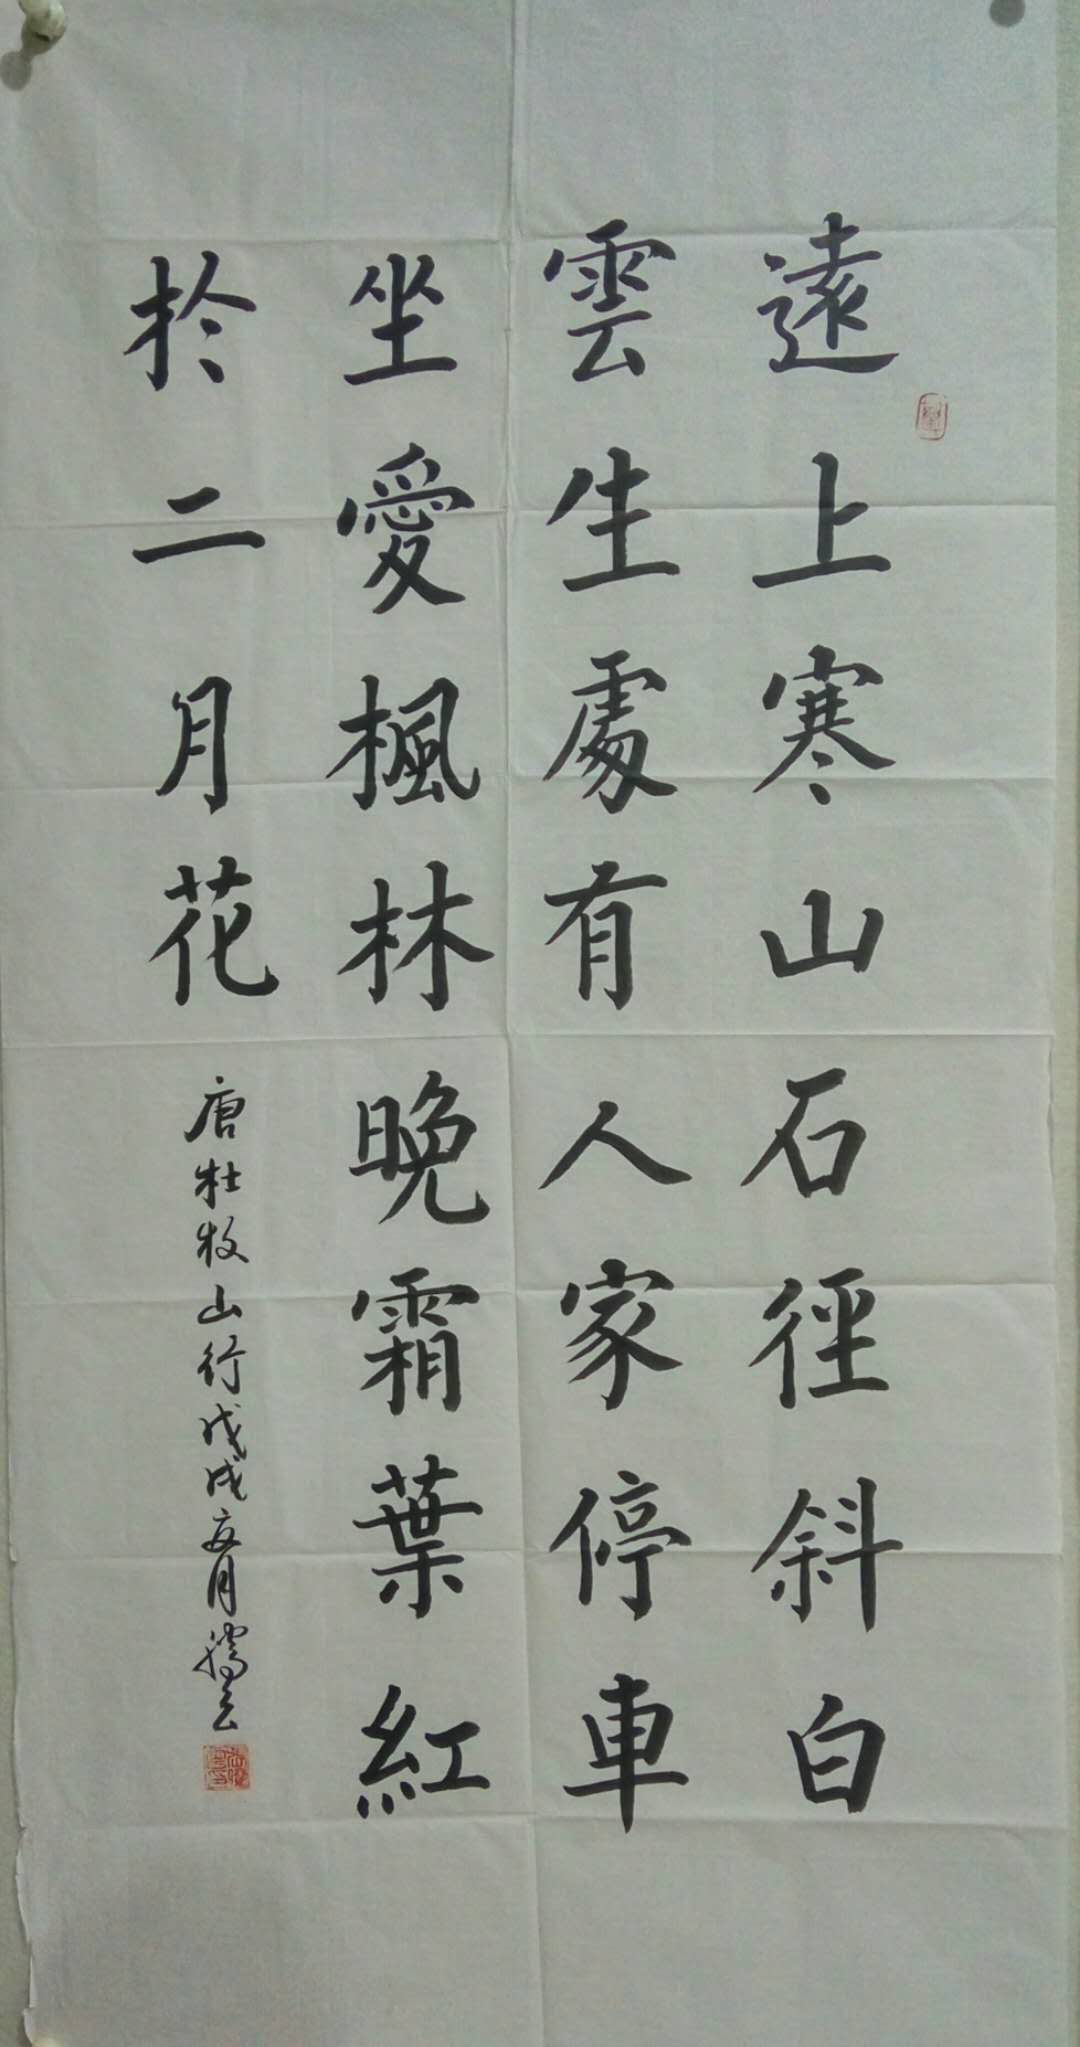 遠上寒山石徑斜白
雲生處有人家停車
坐愛楓林晚霜葉紅
於二月花
唐杜牧山行戊戌夏月騰云